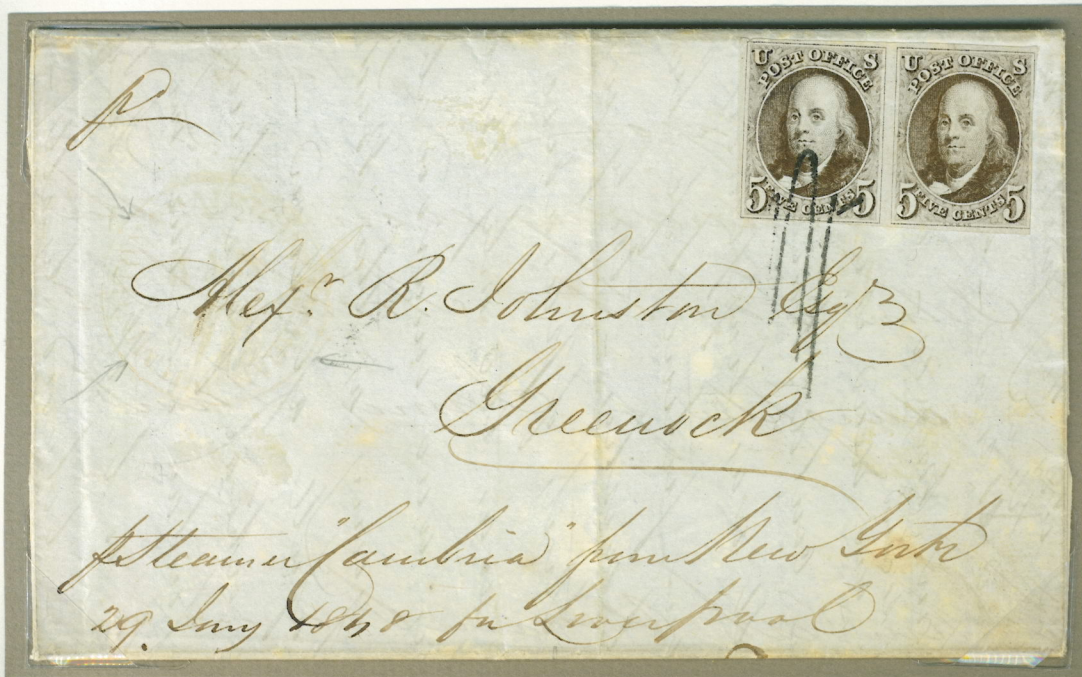 U S
POST OFFICE
5 FIVE CENTS 5
U S
POST OFFICE
5 FIVE CENTS 5
Alexr. R. Johnston Esqr
Greenock
p Steamer "Cambria" from New York
29 Jany 1848 for Liverpool